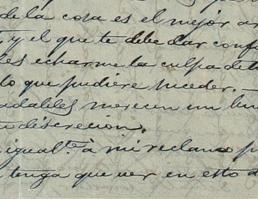 de la cosa es el mejor
y el que te debe dar
es echarme la culpa de
lo que pudiere suceder.
merecen un
discrecion.
igualte. á mi reclamo
tenga que ver en esto